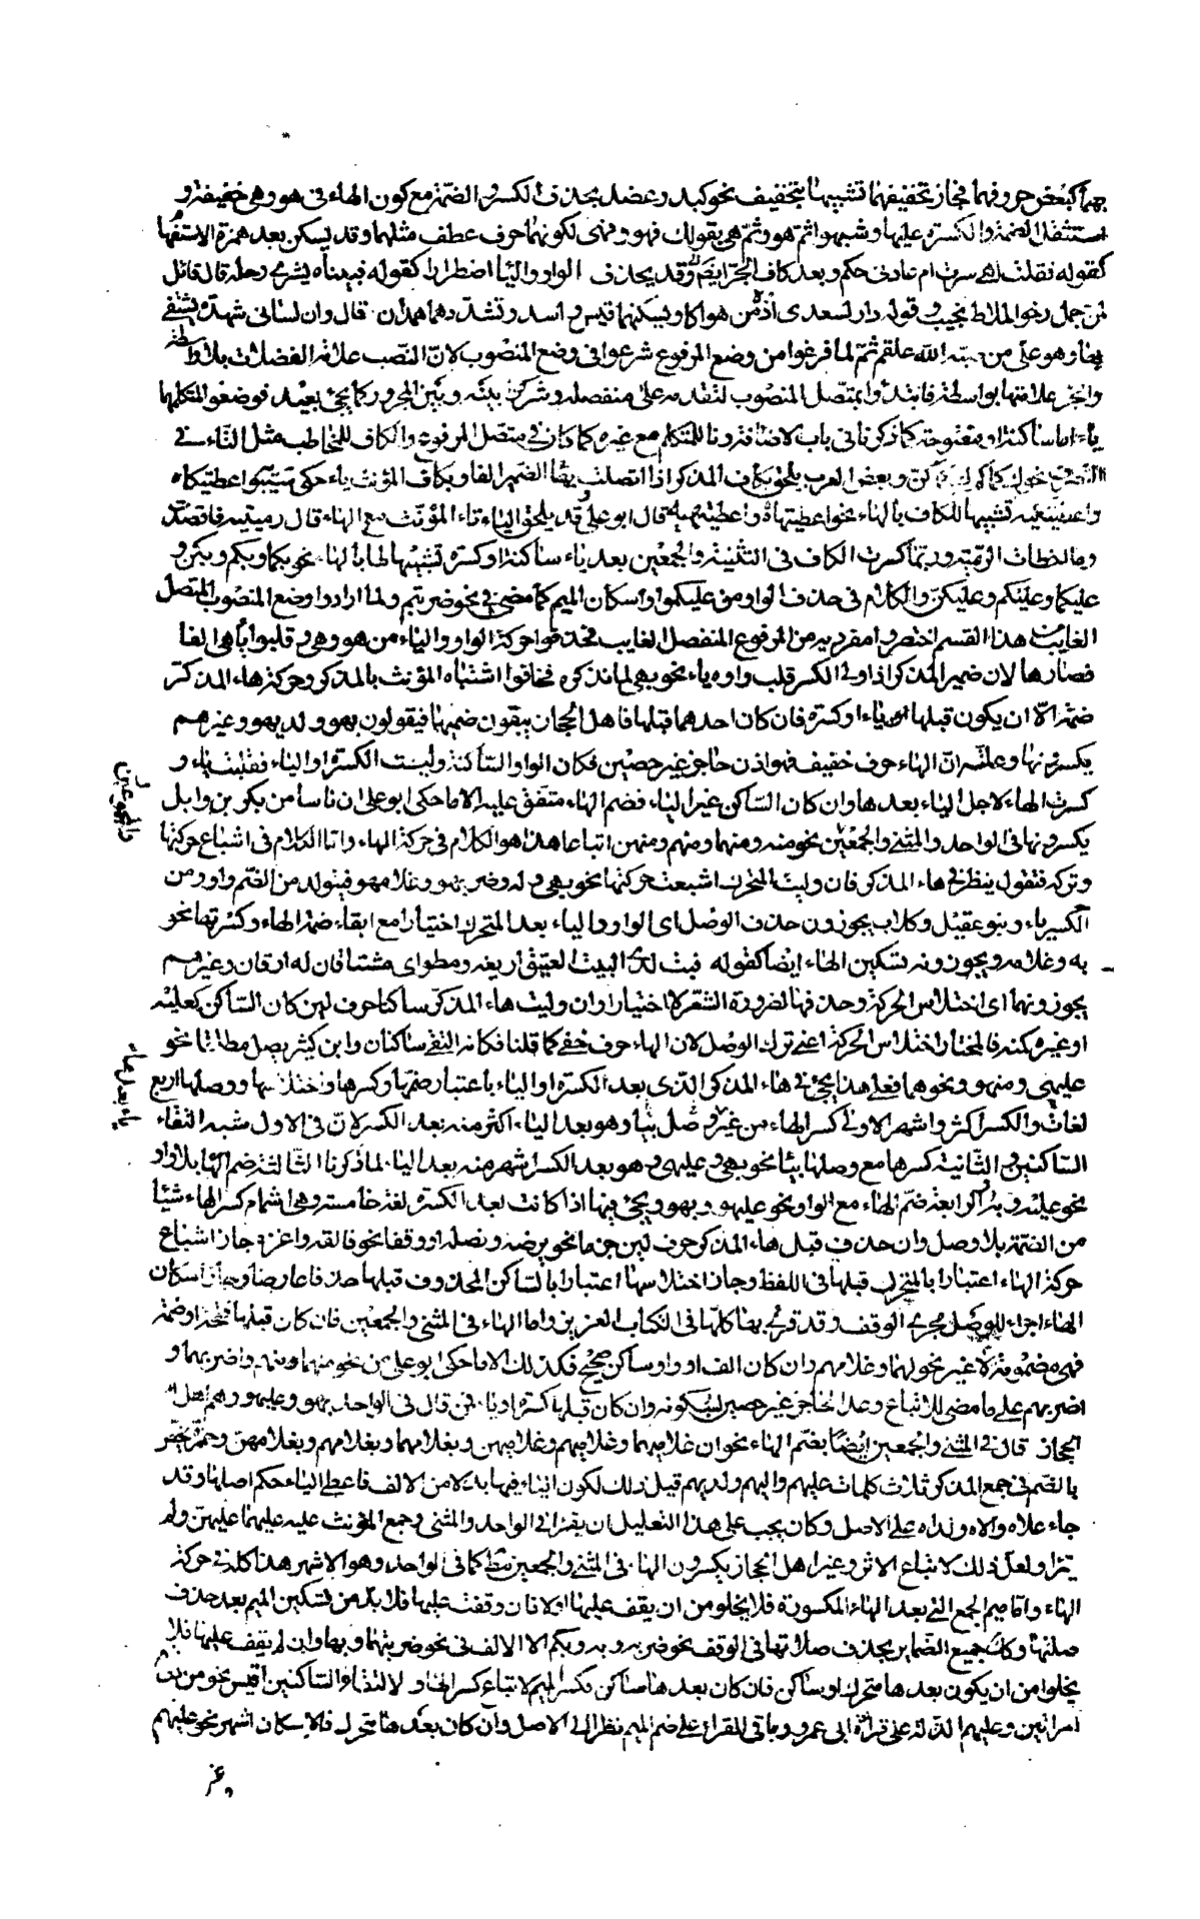 بهما كبعض حروفهما فجاز تخفيفهما تشبيها بتخفيف نحو كبد وعضد بحذف الكسرة والضمة مع كون الهاء في هو وهي خفيفة و
استثقال الضمة والكسرة عليها وشبهوا ثم هو وثم هي بقولك فهو وفهي لكونهما حرف عطف مثلهما وقد يسكن بعد همزة الاستفهام
كقوله فقلت اهي سرت ام عادني حكم وبعد كاف الجر ايضا وقد يحذف الواو والياء اضطرارا كقوله فبيناه يشري رحله قال قائل
لمن جمل رخو الملاط نجيب وقوله دار لسعدى اذه من هواكا ويسكنهما قيس واسد وتشددهما همدان قال وان لساني شهدة يشتفى
بها وهو على من صبه الله علقم ثم لما فرغوا من وضع المرفوع شرعوا في وضع المنصوب لان النصب علامة الفضلات بلا واسطة
والجر علامتها بواسطة فابتدؤا بمتصل المنصوب لتقدمه على منفصله وشركة بينه وبين المجرور كما يجئ بعيد فوضعوا للمتكلم
ياء اما ساكنة او مفتوحة كما ذكرنا في باب الاضافة ونا للمتكلم مع غيره كما كان في متصل المرفوع والكاف للمخاطب مثل التاء في
وبعض العرب يلحق بكاف المذكر اذا اتصلت بهاء الضمير الفا وبكاف المؤنث ياء حكى سيبويه اعطيتكاه
واعطيتكيه تشبيها للكاف بالهاء نحو اعطيتهاه واعطيتهيه قال ابو علي وقد يلحق الياء تاء المؤنث مع الهاء قال رميتيه فاقصدت
وما اخطات الرمية وربما كسرت الكاف في التثنية والجمعين بعد ياء ساكنة او كسرة تشبيها لها بالهاء نحو بكما وبكم وبكن و
عليكما وعليكم وعليكن والكلام في حذف الواو من عليكموا واسكان الميم كما مضى في نحو ضربتم ولما ارادوا وضع المنصوب المتصل
الغايب من هذا القسم اختصروا مفرديه من المرفوع المنفصل الغايب فحذفوا حركة الواو والياء من هو وهي وقلبوا ياء هي الفا
فصار ها لان ضمير المذكر اذا ولى الكسر قلب واوه ياء نحو بهي لما نذكره فخافوا اشتباه المؤنث بالمذكر وحركة هاء المذكر
ضم الا ان يكون قبلها ياء او كسرة فان كان احدهما قبلها فاهل الحجاز يبقون ضمها فيقولون بهو ولديهو وغيرهم
يكسرونها وعلته ان الهاء حرف خفيف فهو اذن حاجز غير حصين فكان الواو الساكنة وليت الكسرة او الياء فقلبت ياء و
كسرت الهاء لاجل الياء بعدها وان كان الساكن غير الياء فضم الهاء متفق عليه الا ما حكى ابو علي ان ناسا من بكر بن وايل
يكسرونها في الواحد والمثنى والجمعين نحو منه ومنهما ومنهم ومنهن اتباعا هذا هو الكلام في حركة الهاء واما الكلام في اشباع حركتها
وتركه فنقول ينظر في هاء المذكر فان وليت المتحرك اشبعت حركتها نحو بهي وله وضربهو وغلامهو فيتولد من الضم واو ومن
الكسر ياء وبنو عقيل وكلاب يجوزون حذف الوصل اي الواو والياء بعد المتحرك اختيارا مع ابقاء ضم الهاء وكسرتها نحو
به وغلامه ويجوزون تسكين الهاء ايضا كقوله فبت لدى البيت العتيق اريغه ومطواي مشتاقان له ارقان وغيرهم
يجوزونهما اي اختلاس الحركة وحذفها لضرورة الشعر لا اختيارا وان وليت هاء المذكر ساكنا حرف لين كان الساكن كعليه
او غيره كمنه فالمختار اختلاس الحركة اعني ترك الوصل لان الهاء حرف خفي كما قلنا فكانه التقى ساكنان وابن كثير يصل مطلقا نحو
عليهي ومنهو ونحوهما فعلى هذا يجئ في هاء المذكر الذي بعد الكسرة او الياء باعتبار ضمها وكسرها واختلاسها ووصلها اربع
لغات والكسر اكثر واشهر الاولى كسر الهاء من غير وصل بياء وهو بعد الياء اكثر منه بعد الكسر لان في الاول شبه التقاء
الساكنين والثانية كسرها مع وصلها بياء نحو بهي وعليهي وهو بعد الكسر اشهر منه بعد الياء لما ذكرنا الثالثة ضم الهاء بلا واو
نحو عليه وبه الرابعة ضم الهاء مع الواو نحو عليهو وبهو ويجئ فيها اذا كانت بعد الكسرة لغة خامسة وهي اشمام كسر الهاء شيئا
من الضمة بلا وصل وان حذف قبل هاء المذكر حرف لين جزما نحو يرضه ونصله او وقفا نحو فالقه واغزه جاز اشباع
حركة الهاء اعتبارا بالمتحرك قبلها في اللفظ وجاز اختلاسها اعتبارا بالساكن المحذوف قبلها حذفا عارضا وجاز اسكان
الهاء اجراء للوصل مجرى الوقف وقد قرئ بها كلها في الكتاب العزيز واما الهاء في المثنى والجمعين فان كان قبلها فتحة او ضمة
فهي مضمومة لا غير نحو لهما وغلامهم وان كان الف او واو ساكن صحيح فكذلك الا ما حكى ابو علي من نحو منهما ومنهم واضربهما و
اضربهم على ما مضى للاتباع وعد الحاجز غير حصين لسكونه وان كان قبلها كسرة او ياء فمن قال في الواحد بهو وعليهو وهم اهل
الحجاز قال في المثنى والجمعين ايضا بضم الهاء نحو ان غلاميهما وغلاميهم وغلاميهن وبغلامهما وبغلامهم وبغلامهن وحمزة يخص
بالضم في جمع المذكر ثلاث كلمات عليهم واليهم ولديهم قيل ذلك لكون الياء فيها بدلا من الالف فاعطى الياء حكم اصلها وقد
جاء علاه والاه ولداه على الاصل وكان يجب على هذا التعليل ان يقرا في الواحد والمثنى وجمع المؤنث عليه عليهما عليهن ولم
يقرا ولعل ذلك لاتباع الاثر وغير اهل الحجاز يكسرون الهاء في المثنى والجمعين كما في الواحد وهو الاشهر هذا كله في حركة
الهاء واما ميم الجمع التي بعد الهاء المكسورة فلا يخلو من ان يقف عليها او لا فان وقفت عليها فلا بد من تسكين الميم بعد حذف
صلتها وكذا جميع الضماير يحذف صلاتها في الوقف نحو ضربه وبه وبكم الا الالف في نحو ضربتهما وبها وان لم يقف عليها فلا
يخلوا من ان يكون بعدها متحرك او ساكن فان كان بعدها ساكن فكسر الميم لاتباع كسر الهاء ولالتقاء الساكنين اقيس نحو من دونهم
امراتين وعليهم الذلة على قراءة ابي عمرو وباقي القراء على ضم الميم نظرا الى الاصل وان كان بعدها متحرك فالاسكان اشهر نحو عليهم